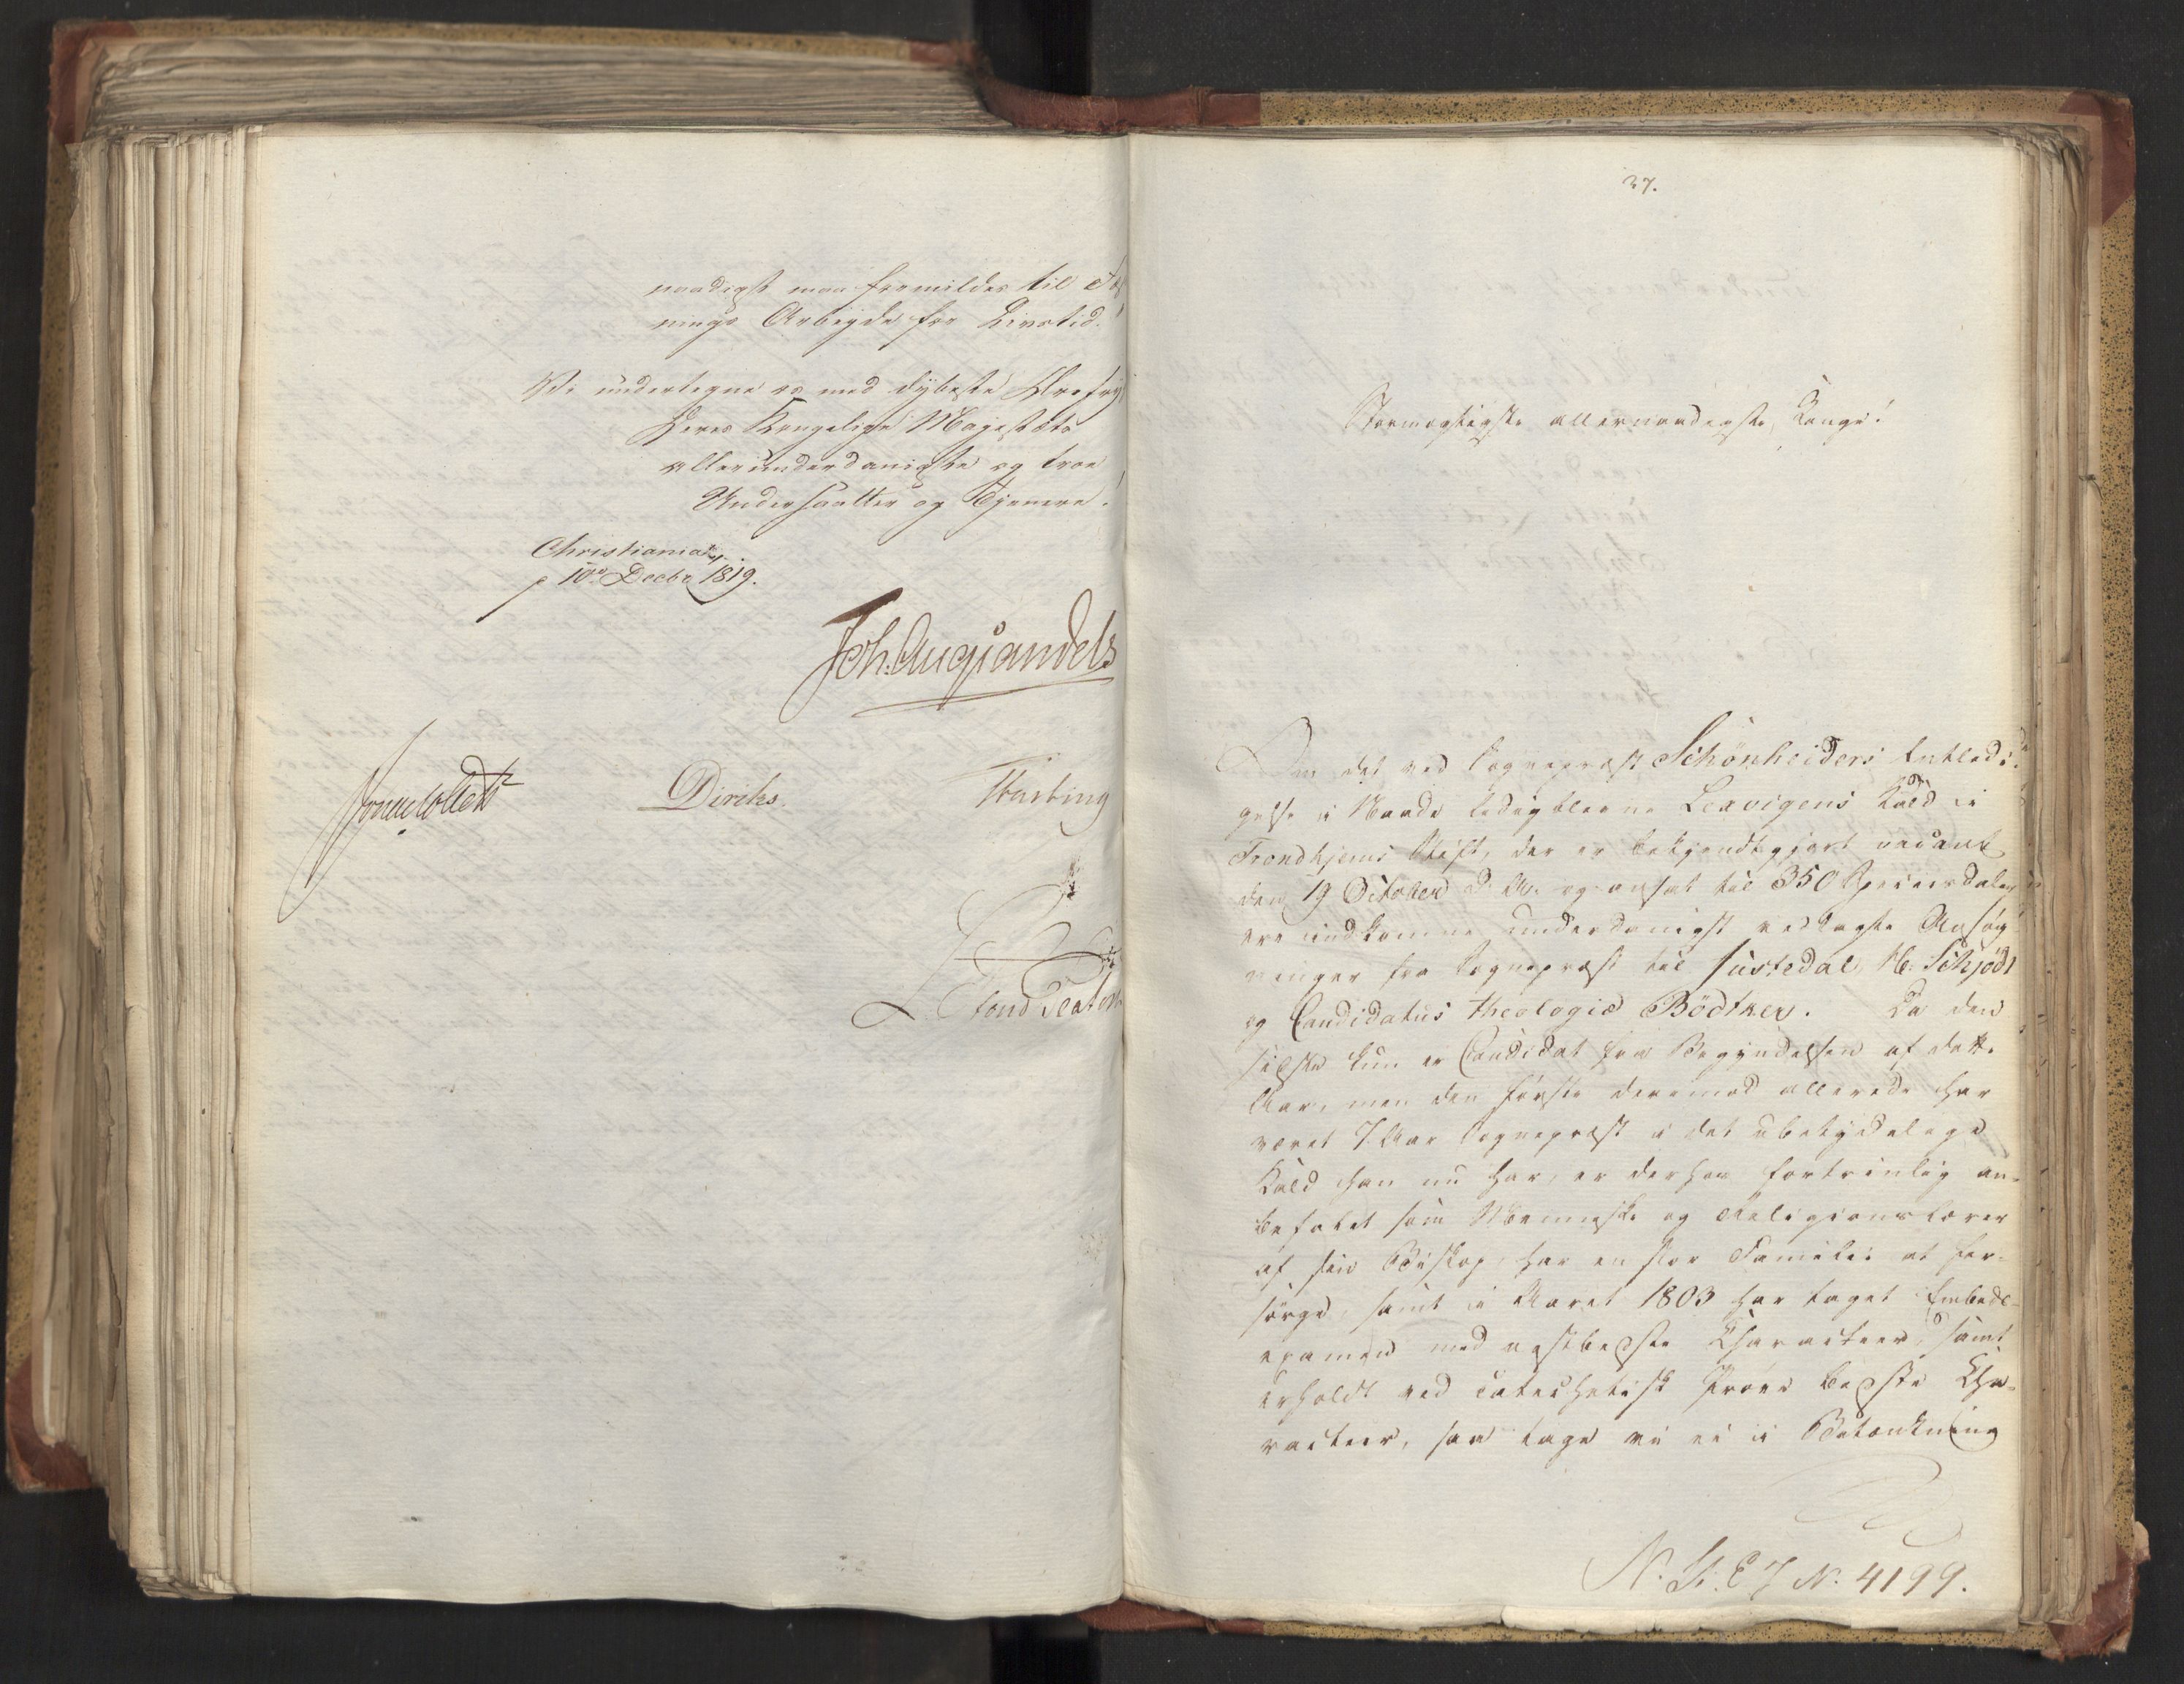 naadigst maa formildes til Fæst
nings Arbeyde for Livstid.
Vi undertegne os med dybeste Ærefrygt
Deres Kongelige Majestæts
allerunderdanigste og troe
Undersaatter og Tjenere.
Christiania
10de Decbr 1819.
Joh. Aug Sandels
Jonas Collett
Diriks
Motzfeldt
37.
Stormægtigste allernaadigste Konge!
Om det ved Sogneprest Schönheiders Entledi-
gelse i Naade ledigblevne Lexvigens Kald i
Trondhjems Stift, der er bekjendtgjort vacant
den 19 October d. A. og ansat til 350 Speciesdaler
ere indkomne underdanigst vedlagte Ansøg
ninger fra Sogneprest til Justedal Hr. Schjödt
og Candidatus theologiæ Bödtker. Da den
sidste kun er Candidat fra Begyndelsen af dette
Aar, men den første deremod allerede har
været 7 Aar Sogneprest i det ubetydelige
Kald han nu har, er derhos fortrinlig an-
befalet som Menneske og Religionslærer
af sin Biskop, har en stor Familie at for-
sørge, samt i Aaret 1803 har taget Embeds-
examen med næstbedste Characteer, samt
erholdt ved catechetisk Prøve bedste Cha-
racteer, saa tage vi ei i Betænkning
N. St. E J N. 4199.